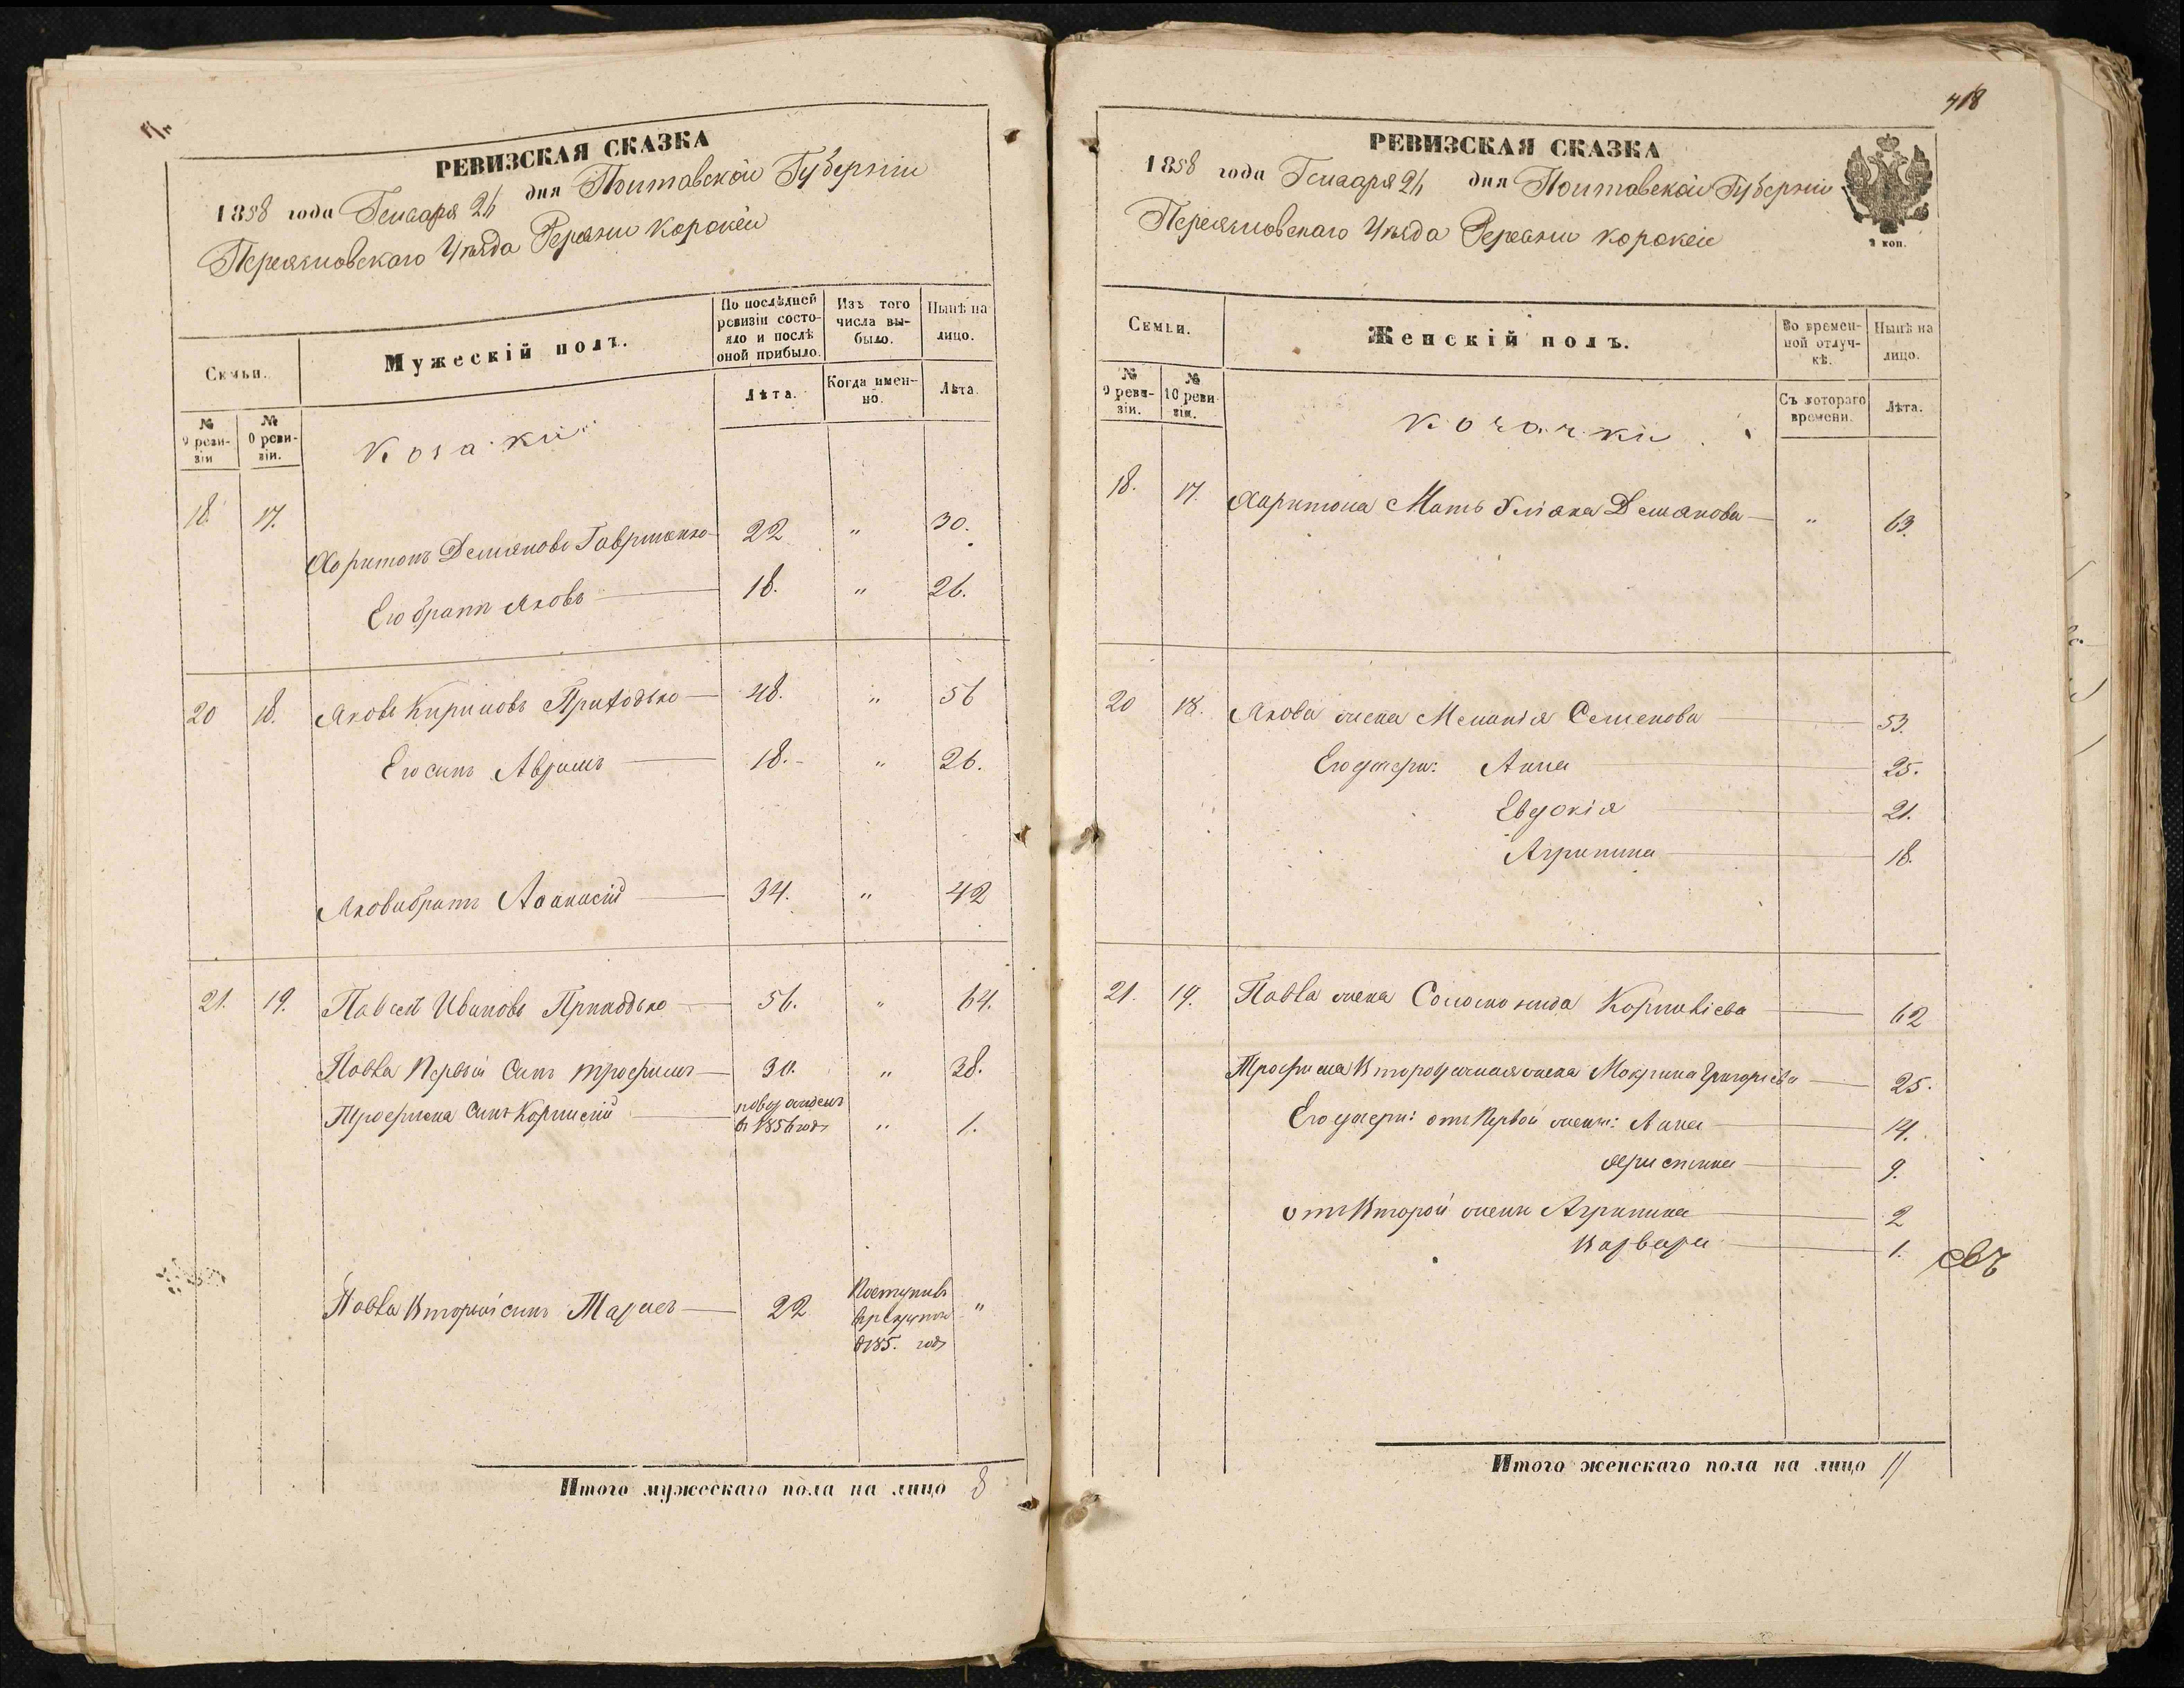 РЕВИЗСКАЯ СКАЗКА
1858 года Генваря 24 дня Полтавской Губерніи
Переяславскаго Уѣзда Деревни Коржей
Семьи.
Мужескій полъ.
По послѣдней ревизіи состояло и послѣ оной прибыло.
Изъ того числа выбыло.
Нынѣ на лицо.
№ 9 ревизіи
№ 10 ревизіи.
Лѣта.
Когда именно.
Лѣта.
Козаки
18. 17. Харитонъ Демяновъ Гавриленко 22 " 30.
Его братъ Яковъ 18. " 26.
20 18. Яковъ Кириловъ Приходько 48. " 56
Его сынъ Аврамъ 18. " 26.
Якова братъ Аѳанасій 34. " 42
21. 19. Павелъ Ивановъ Приходько 56. " 64.
Павла Первый сынъ Трофимъ 30. " 38.
Трофима сынъ Корнилій новорожденъ в 1856 годѣ " 1.
Павла Вторый сынъ Тарасъ 22 Поступилъ в рекруты в 185. годѣ "
Итого мужескаго пола на лицо 8
418
РЕВИЗСКАЯ СКАЗКА
1858 года Генваря 24 дня Полтавской Губерніи
Переяславскаго Уѣзда Деревни Коржей
2 коп.
Семьи.
Женскій полъ.
Во временной отлучкѣ.
Нынѣ на лицо.
№ 9 ревизіи.
№ 10 ревизіи.
Съ котораго времени.
Лѣта.
Козачки
18. 17. Харитона Мать Уліяна Демянова " 63.
20 18. Якова жена Меланія Семенова 53.
Его дочери: Анна 25.
Евдокія 21.
Агрипина 18.
21. 19. Павла жена Соломонида Корніевa 62
Трофима Второбрачная жена Мокрина Григоріева 25.
Его дочери: отъ Первой жены: Анна 14.
Христина 9.
отъ Второй жены Агрипина 2
Варвара 1.
Итого женскаго пола на лицо 11